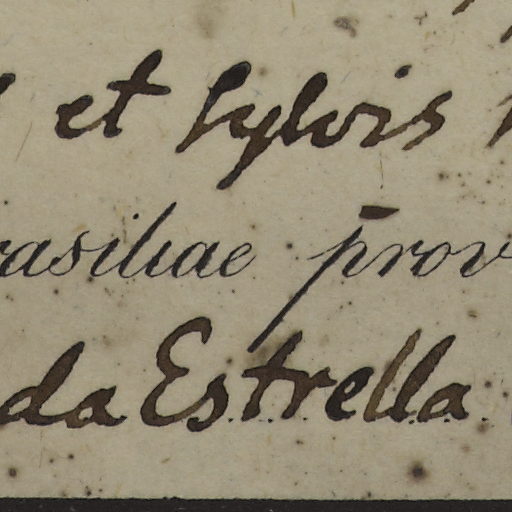 et sylvis
rasiliae prov
da Estrella